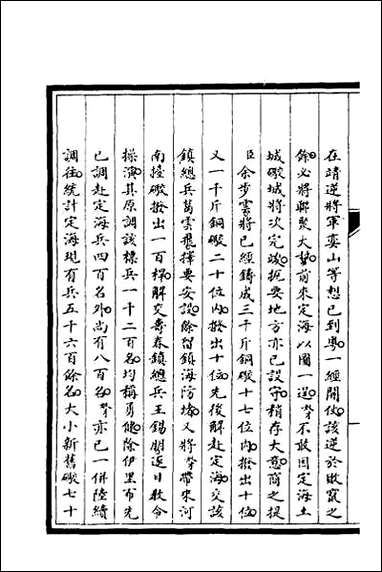 在靖逆將軍奕山等想已到粵一經開仗該逆於敗竄之
餘必將聯聚大幫前來定海以圖一逞拏不敢因定海土
城礮城將次完竣扼要地方亦已設守稍存大意商之提
臣余步雲將已經鑄成三千斤銅礮十七位內撥出十位
又一千斤銅礮二十位內撥出十位先後解赴定海交該
鎮總兵葛雲飛擇要安設餘留鎮海防堵又將拏帶來河
南擡礮撥出一百桿解交壽春鎮總兵王錫朋逐日教令
操演其原調該標兵一千二百名均稱勇健除伊里布先
已調赴定海兵四百名外尚有八百名拏亦已一併陸續
調往統計定海現有兵五千六百餘名大小新舊礮七十